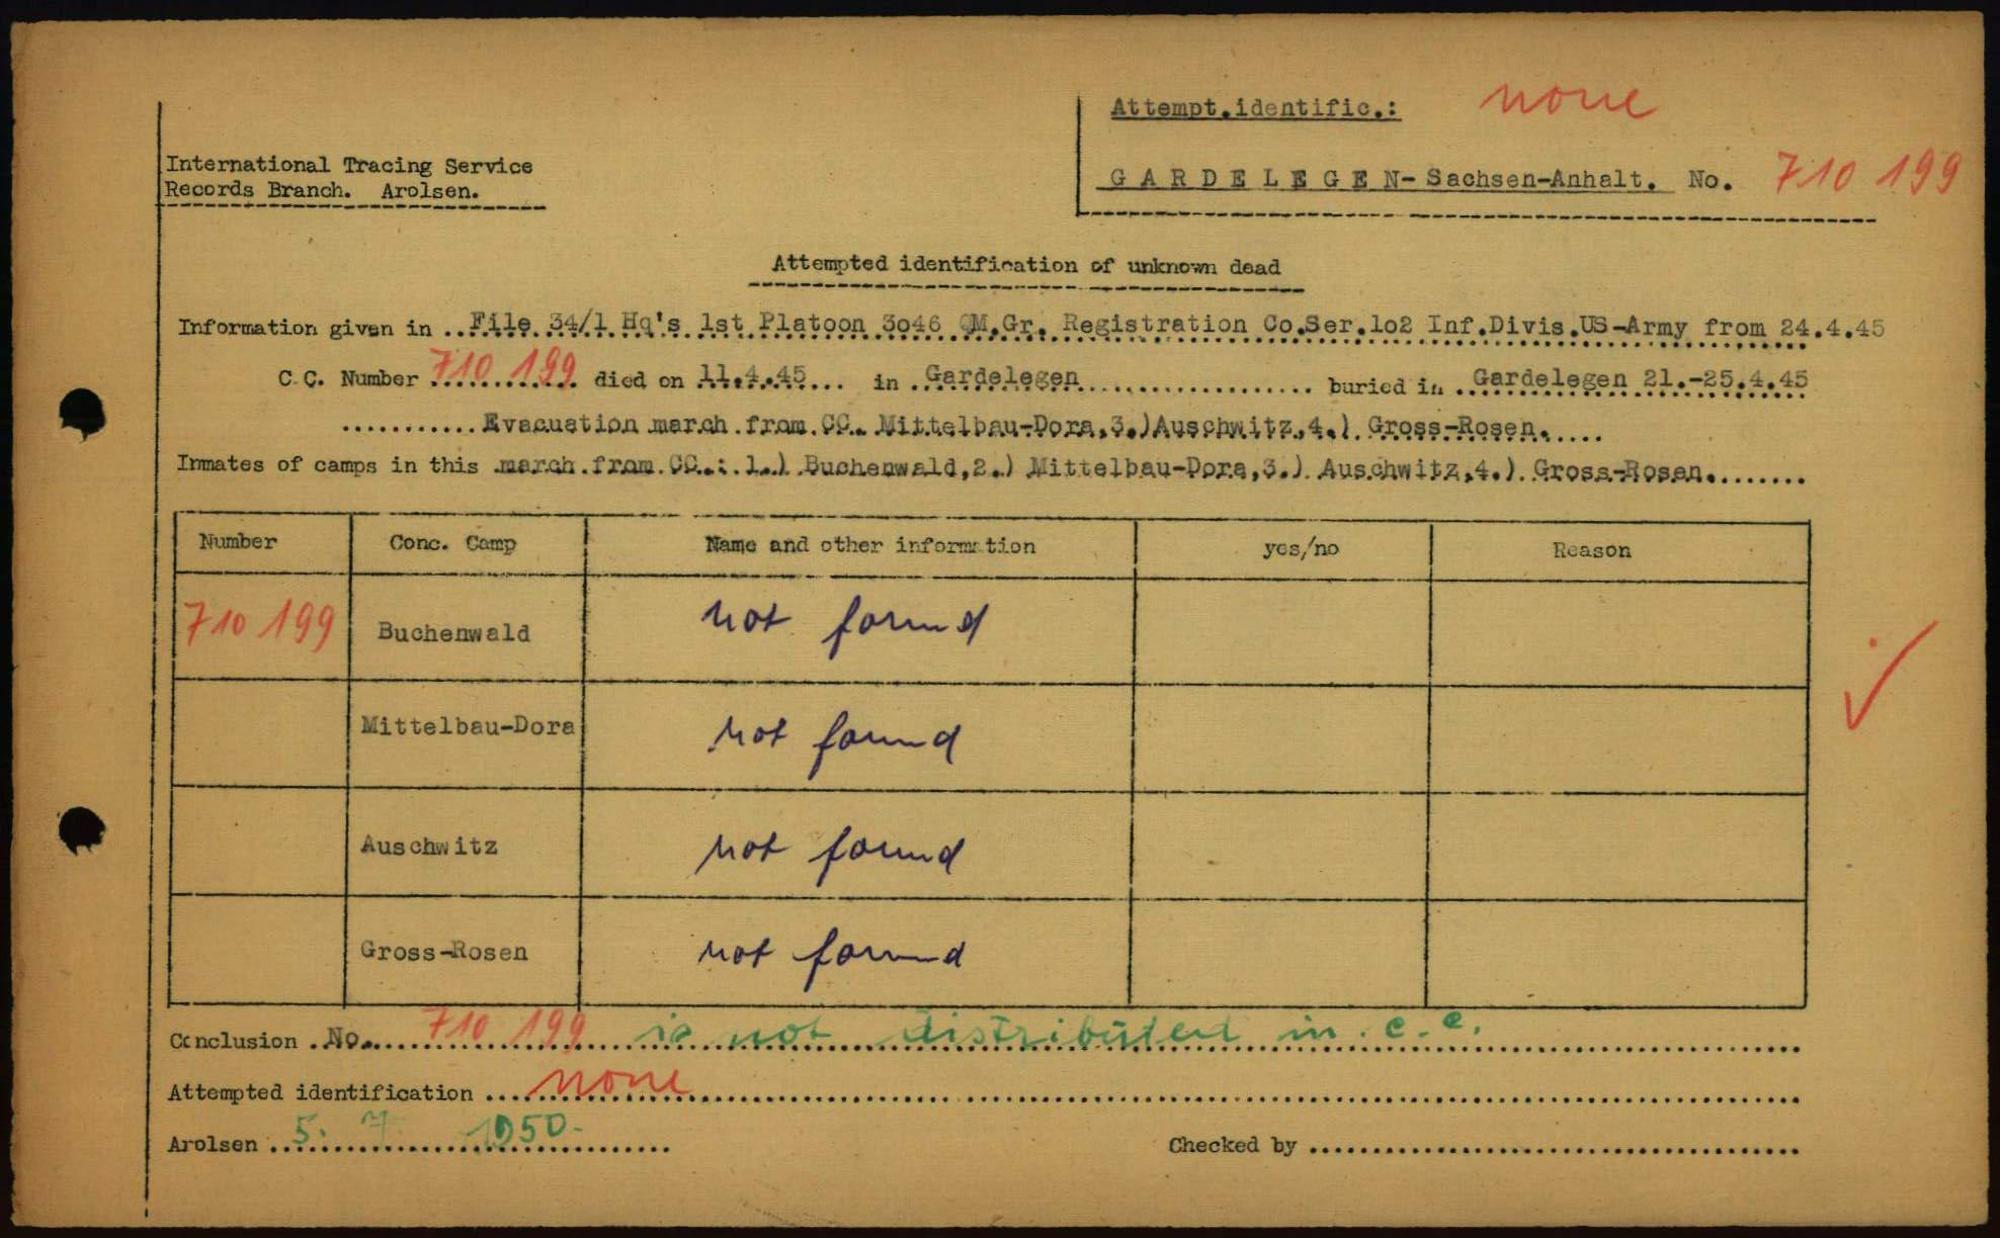 Attempt.identific.: none
International Tracing Service
Records Branch. Arolsen.
GARDELEGEN-Sachsen-Anhalt. No. 710 199
Attempted identification of unknown dead
Information given in ..File 34/1 Hq's 1st Platoon 3o46 QM.Gr. Registration Co.Ser.1o2 Inf.Divis.US-Army from 24.4.45
C.C. Number 710 199 died on 11.4.45... in .Gardelegen.................. buried in .Gardelegen 21.-25.4.45
...........Evacuation march from CC. Mittelbau-Dora,3.)Auschwitz,4.) Gross-Rosen.....
Inmates of camps in this march from CC.: 1.) Buchenwald,2.) Mittelbau-Dora,3.) Auschwitz,4.) Gross-Rosen........
Number Conc. Camp Name and other information yes/no Reason
710 199 Buchenwald not found
Mittelbau-Dora not found
Auschwitz not found
Gross-Rosen not found
Conclusion .No. 710 199 is not distributed in c.c.
Attempted identification ... none
Arolsen 5. 7 1950.
Checked by ......................................